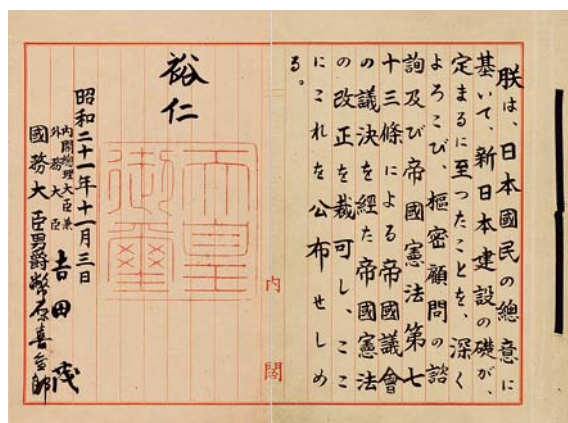 朕は、日本國民の總意に
基いて、新日本建設の礎が、
定まるに至つたことを、深く
よろこび、樞密顧問の諮
詢及び帝國憲法第七
十三條による帝國議會
の議決を経た帝國憲法
の改正を裁可し、ここ
にこれを公布せしめ
る。
内閣
裕仁
天皇
御璽
昭和二十一年十一月三日
内閣總理大臣兼
外務大臣 吉田茂
國務大臣男爵幣原喜重郎